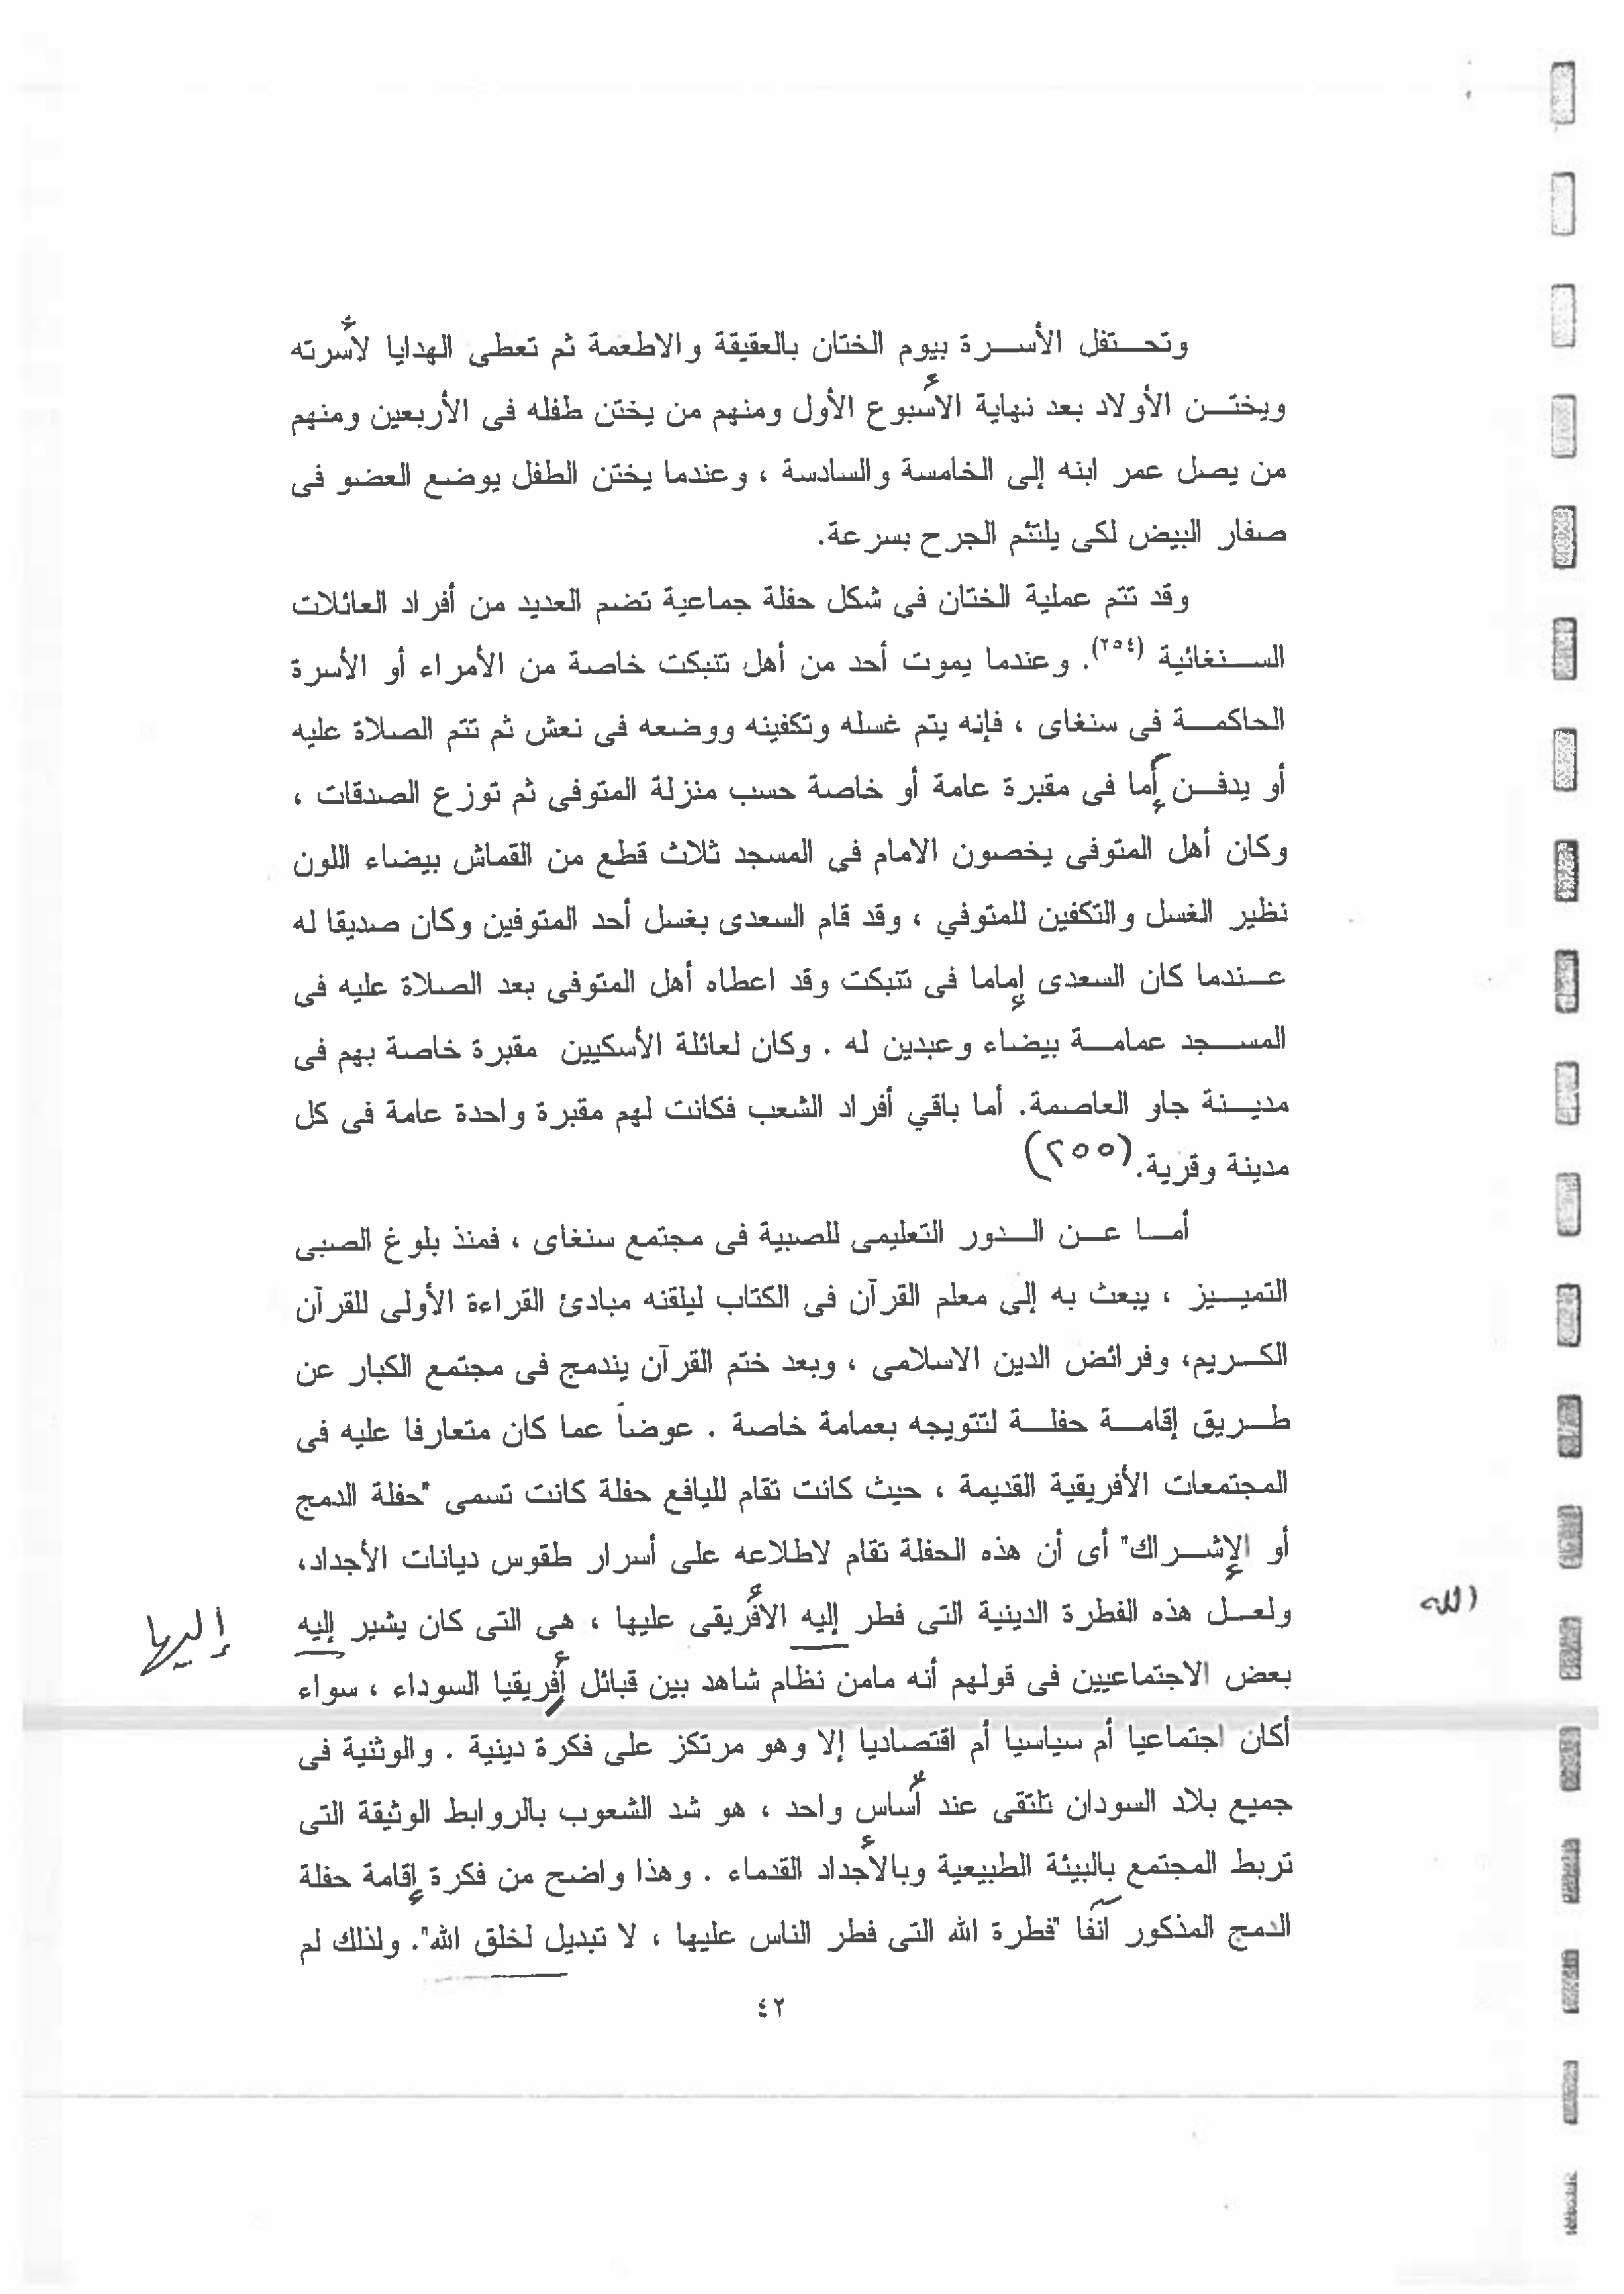 وتحتفل الأسرة بيوم الختان بالعقيقة والاطعمة ثم تعطى الهدايا لأسرته
ويختن الأولاد بعد نهاية الأسبوع الأول ومنهم من يختن طفله فى الأربعين ومنهم
من يصل عمر ابنه إلى الخامسة والسادسة ، وعندما يختن الطفل يوضع العضو فى
صفار البيض لكى يلتئم الجرح بسرعة.
وقد تتم عملية الختان فى شكل حفلة جماعية تضم العديد من أفراد العائلات
السنغائية (٢٥٤). وعندما يموت أحد من أهل تنبكت خاصة من الأمراء أو الأسرة
الحاكمة فى سنغاى ، فإنه يتم غسله وتكفينه ووضعه فى نعش ثم تتم الصلاة عليه
أو يدفن إما فى مقبرة عامة أو خاصة حسب منزلة المتوفى ثم توزع الصدقات ،
وكان أهل المتوفى يخصون الامام فى المسجد ثلاث قطع من القماش بيضاء اللون
نظير الغسل والتكفين للمتوفي ، وقد قام السعدى بغسل أحد المتوفين وكان صديقا له
عندما كان السعدى إماما فى تنبكت وقد اعطاه أهل المتوفى بعد الصلاة عليه فى
المسجد عمامة بيضاء وعبدين له . وكان لعائلة الأسكيين مقبرة خاصة بهم فى
مدينة جاو العاصمة. أما باقي أفراد الشعب فكانت لهم مقبرة واحدة عامة فى كل
مدينة وقرية. (٢٥٥)
أما عن الدور التعليمى للصبية فى مجتمع سنغاى ، فمنذ بلوغ الصبى
التمييز ، يبعث به إلى معلم القرآن فى الكتاب ليلقنه مبادئ القراءة الأولى للقرآن
الكريم، وفرائض الدين الاسلامى ، وبعد ختم القرآن يندمج فى مجتمع الكبار عن
طريق إقامة حفلة لتتويجه بعمامة خاصة . عوضاً عما كان متعارفا عليه فى
المجتمعات الأفريقية القديمة ، حيث كانت تقام لليافع حفلة كانت تسمى "حفلة الدمج
أو الإشراك" أى أن هذه الحفلة تقام لاطلاعه على أسرار طقوس ديانات الأجداد،
ولعل هذه الفطرة الدينية التى فطر إليه الأفريقى عليها ، هى التى كان يشير إليه
الله
إليها
بعض الاجتماعيين فى قولهم أنه مامن نظام شاهد بين قبائل أفريقيا السوداء ، سواء
أكان اجتماعيا أم سياسيا أم اقتصاديا إلا وهو مرتكز على فكرة دينية . والوثنية فى
جميع بلاد السودان تلتقى عند أساس واحد ، هو شد الشعوب بالروابط الوثيقة التى
تربط المجتمع بالبيئة الطبيعية وبالأجداد القدماء . وهذا واضح من فكرة إقامة حفلة
الدمج المذكور آنفا "فطرة الله التى فطر الناس عليها ، لا تبديل لخلق الله". ولذلك لم
٤٢